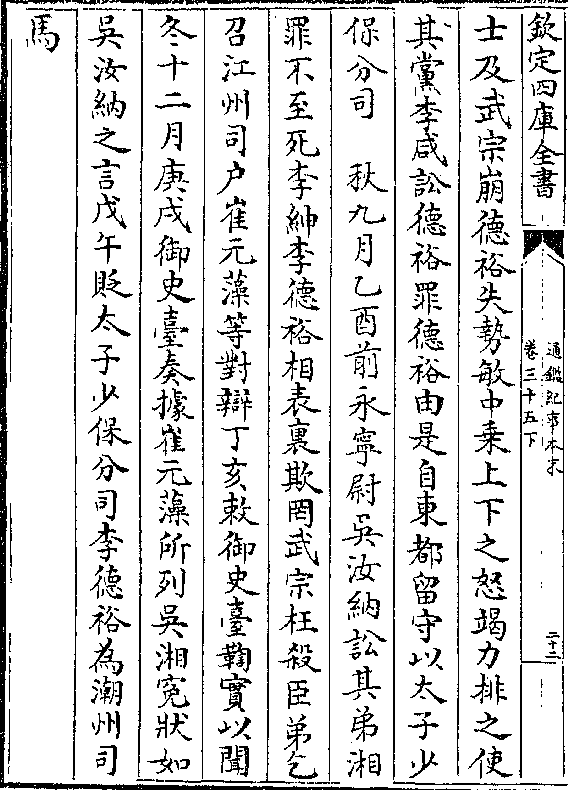 欽定四庫全書
通鑑紀事本末
卷三十五下
二十二
士及武宗崩德裕失勢敏中乗上下之怒竭力排之使
其黨李咸訟德裕罪德裕由是自東都留守以太子少
保分司　秋九月乙酉前永寧尉吳汝納訟其弟湘
罪不至死李紳李德裕相表裏欺罔武宗枉殺臣弟乞
召江州司户崔元藻等對辯丁亥敕御史臺鞫實以聞
冬十二月庚戌御史臺奏據崔元藻所列吳湘寃狀如
吳汝納之言戊午貶太子少保分司李德裕為潮州司
馬